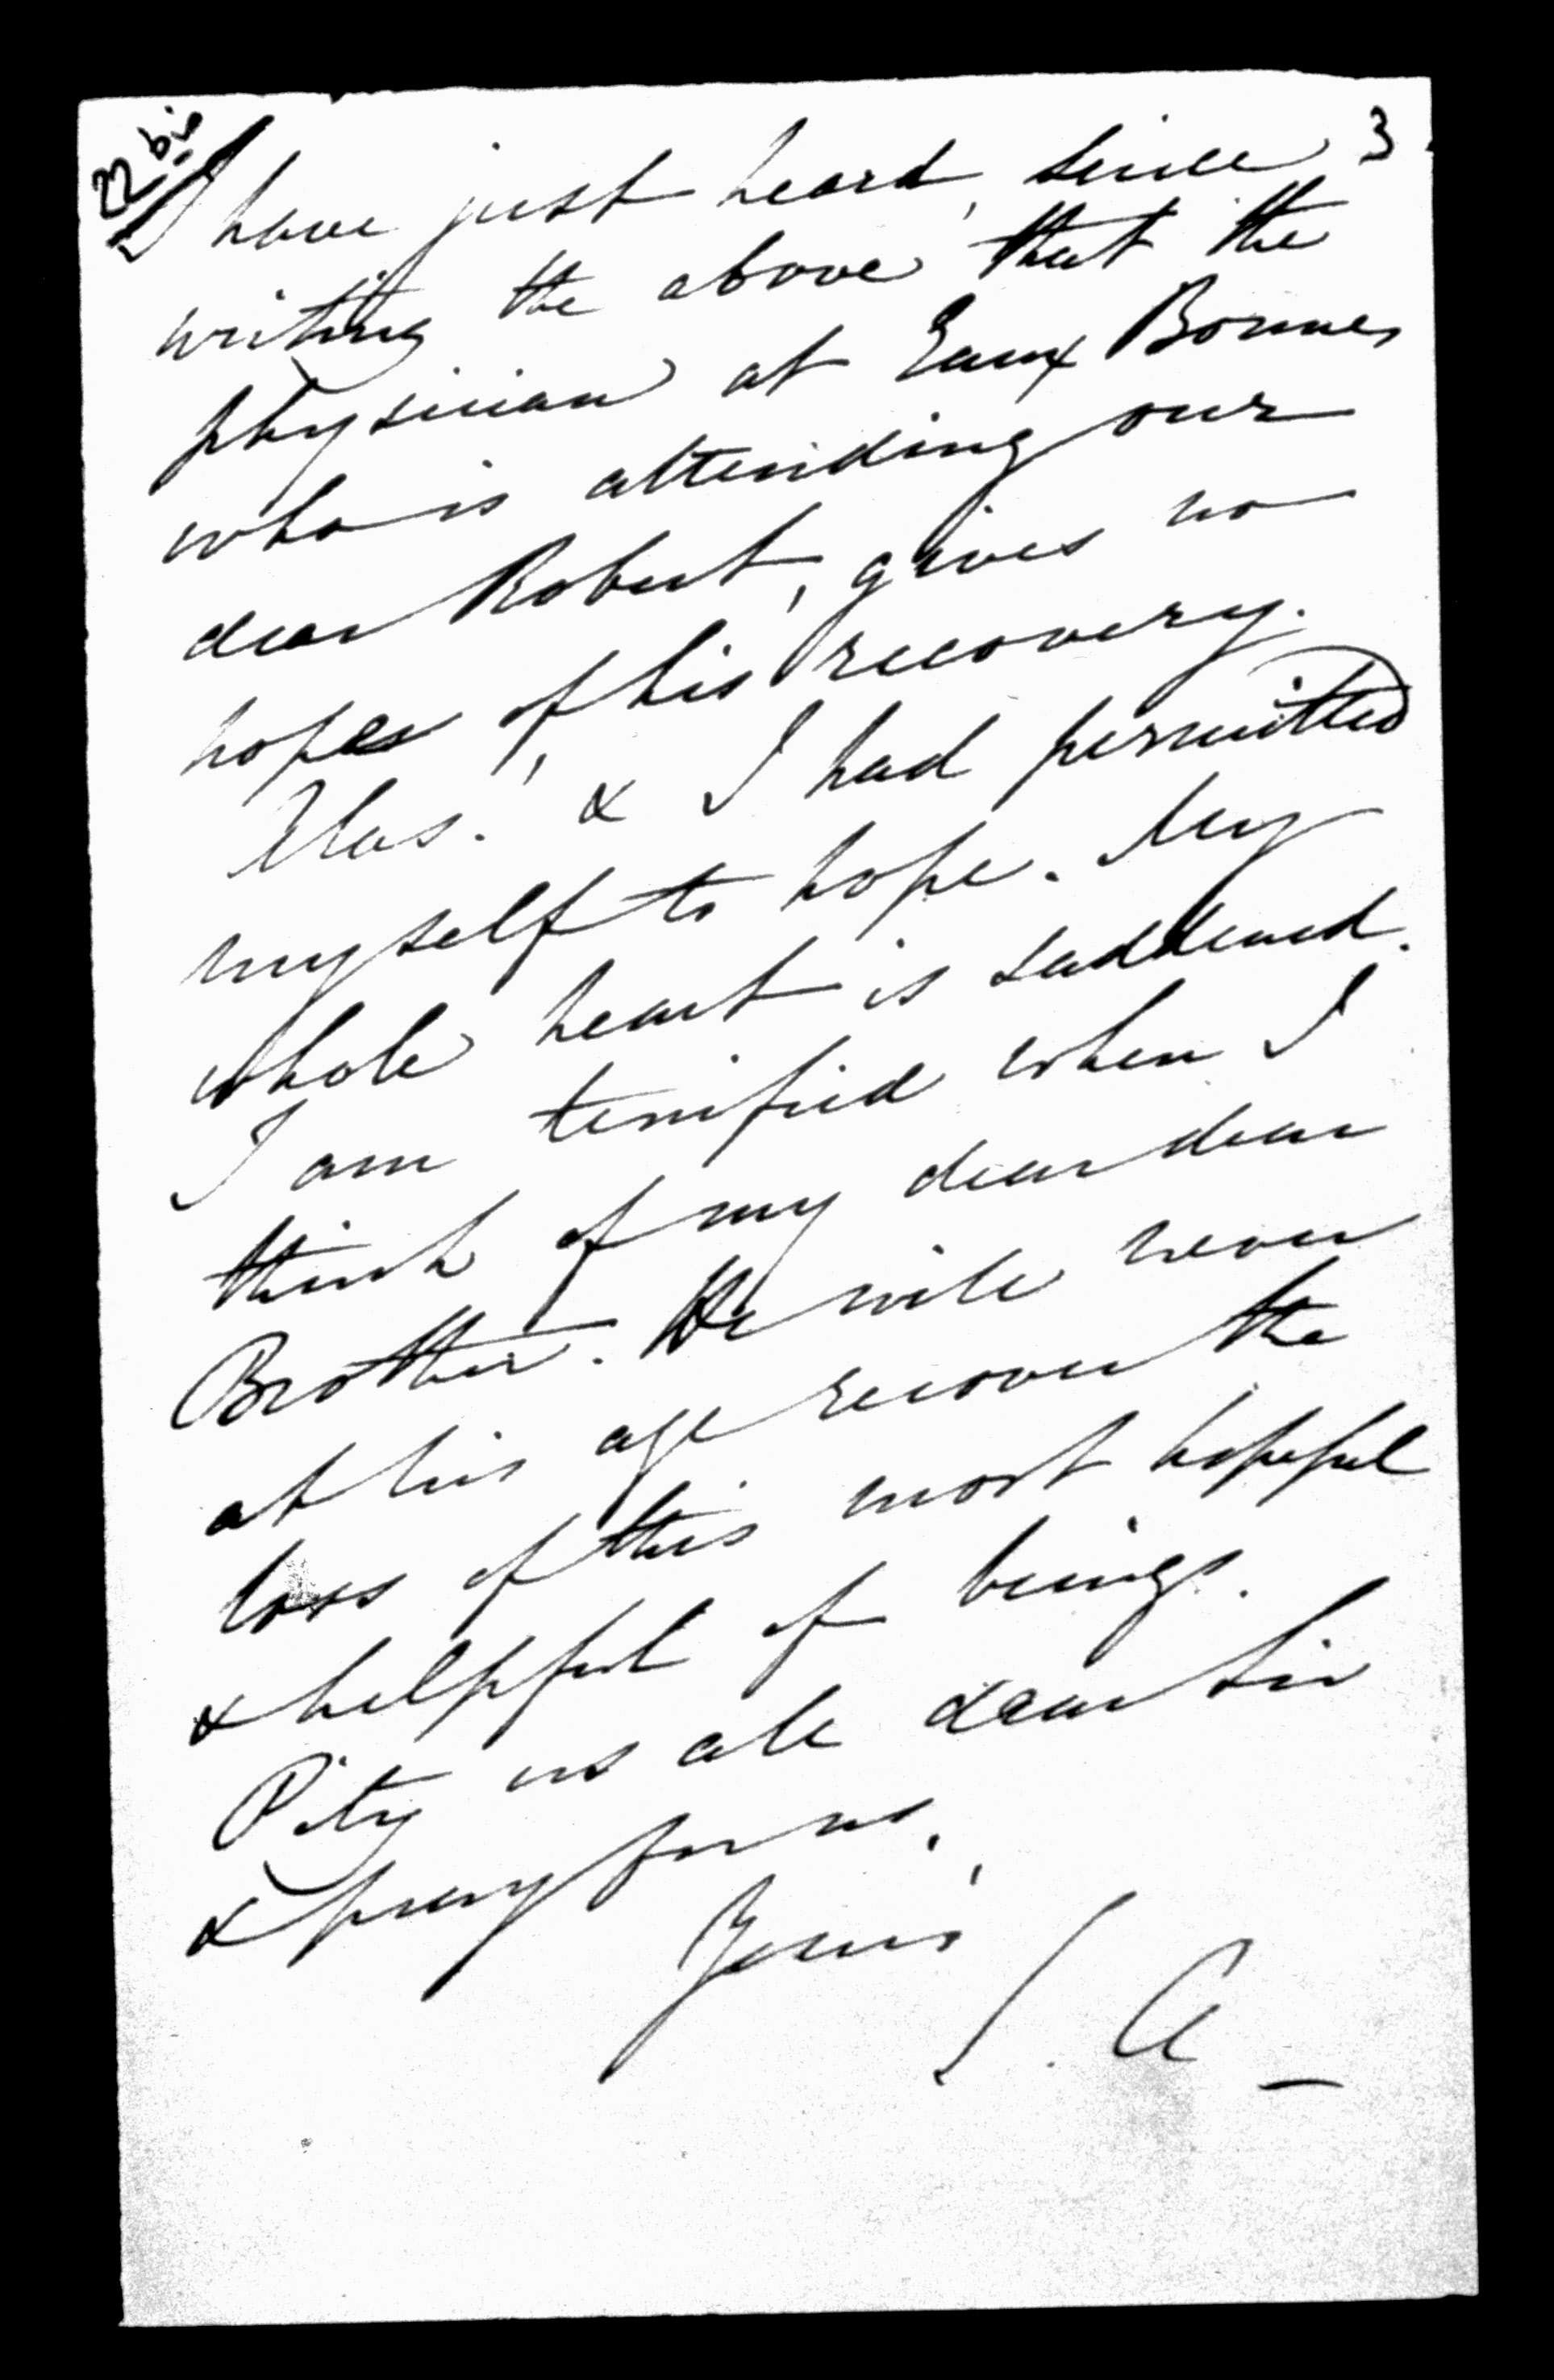 22 bis
3
I have just heard, since
writing the above that the
physician at Eaux Bonnes
who is attending our
dear Robert, gives no
hopes of his recovery.
Alas! & I had permitted
myself to hope. My
whole heart is saddened.
I am terrified when I
think of my dear dear
Brother. He will never
at his age recover the
loss of this most hopeful
& helpful of beings.
Pity us all dear Sir
& pray for us.
Yours
S. A